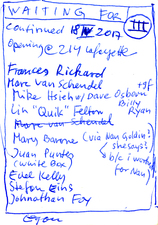 WAITING FOR III
continued 18 IV 2017
Opening @ 214 Lafayette
Frances Richard
Marc van Schendel +gf
Mike Hsieh / Dave Osborn
Lin "Quik" Felton Billy Ryan
Marc van Schendel
Mary Barone (via Nan Goldin?
she says?
Juan Puntes b/c i work
(White Box) for Nan)
Evel Kelly
Stefan Eins
Johnathan Fox